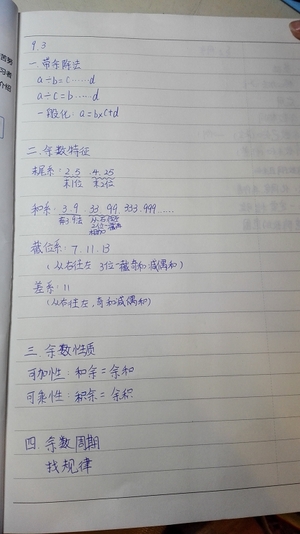 9.3
一.带余除法
a÷b=c……d
a÷c=b……d
一般化: a=b×c+d
二.余数特征
末尾系: 2.5 4.25
末1位 末2位
和系: 3.9 33.99.333.999……
弃9法 从右往左
2位一截
截位系: 7.11.13
(从右往左 3位一截奇和减偶和)
差系: 11
(从右往左,奇和减偶和)
三.余数性质
可加性: 和余=余和
可乘性: 积余=余积
四.余数周期
找规律
苦努
习者
介绍